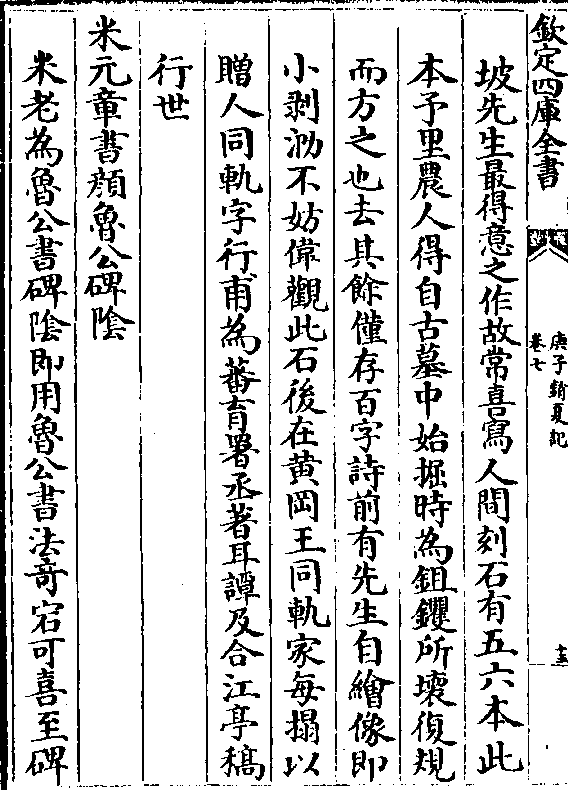 欽定四庫全書
庚子銷夏記
卷七
十三
坡先生最得意之作故常喜寫人間刻石有五六本此
本予里農人得自古墓中始掘時為鉏钁所壞復規
而方之也去其餘僅存百字詩前有先生自繪像即
小剥泐不妨偉觀此石後在黄岡王同軌家每搨以
贈人同軌字行甫為蕃育署丞著耳譚及合江亭稿
行世
米元章書顔魯公碑隂
米老為魯公書碑隂即用魯公書法竒宕可喜至碑